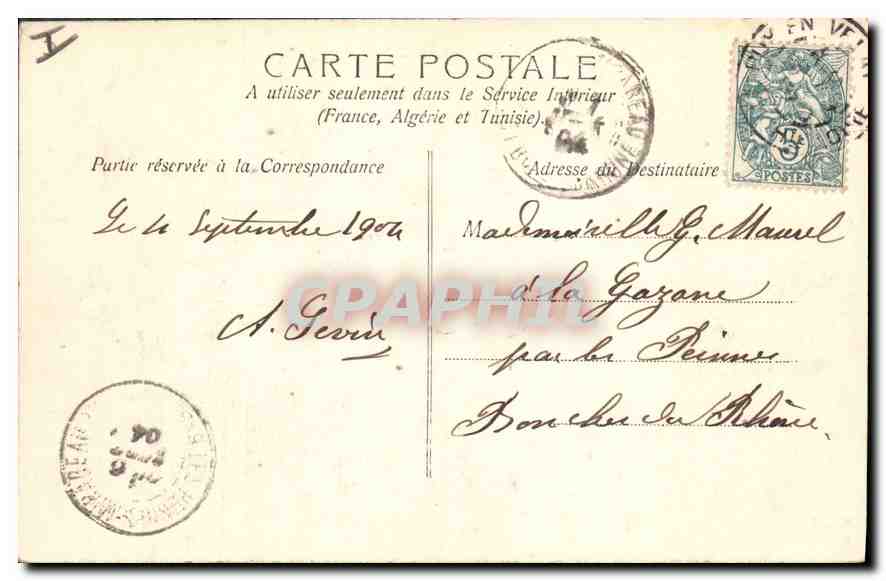 CARTE POSTALE
A utiliser seulement dans le Service Intérieur
(France, Algérie et Tunisie).
Partie réservée à la Correspondance
Adresse du Destinataire
Le 4 Septembre 1904
A. Gevin
Mademoiselle G. Maurel
à la Gazane
par les Pennes
Bouches du Rhône
CPAPHIL
5
POSTES
EN VELAY
04
6
04